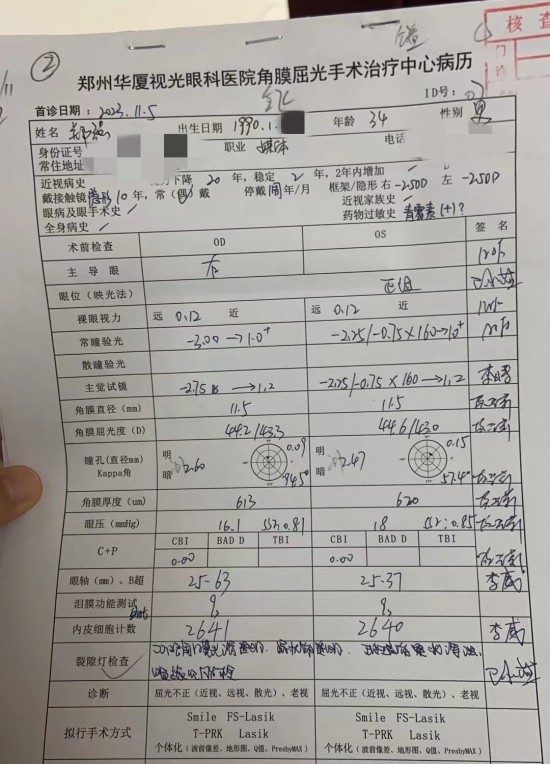 核查
②
郑州华厦视光眼科医院角膜屈光手术治疗中心病历
首诊日期：2023.11.5
ID号：
姓名 出生日期 1990.1. 年龄 34 性别 男
身份证号 职业 媒体 电话
常住地址
近视病史 力下降 20 年，稳定 2 年，2年内增加
戴接触镜 隐形 10 年，常（偶）戴 停戴 周/月 框架/隐形 右 -2.50D 左 -2.50D
眼病及眼手术史 近视家族史
全身病史 药物过敏史 青霉素(+)?
术前检查 OD OS 签名
主导眼 右
眼位（映光法） 正位
裸眼视力 远 0.12 近 远 0.12 近
常瞳验光 -3.00→1.0⁺ -2.25/-0.75×160→1.0⁺
散瞳验光
主觉试镜 -2.75 →1.2 -2.25/-0.75×160→1.2
角膜直径（mm） 11.5 11.5
角膜屈光度（D） 44.2/43.3 44.6/43.0
瞳孔(直径mm) Kappa角 明 暗 2.60 0.09 94.5° 明 暗 2.47 0.15 57.4°
角膜厚度（um） 613 620
眼压（mmHg） 16.1 0.81 18 0.85
C+P CBI BAD D TBI CBI BAD D TBI
0.00 0.00
眼轴（mm）、B超 25.63 25.37 李威
泪膜功能测试 But 9s 9s
内皮细胞计数 2641 2640 李威
裂隙灯检查
诊断 屈光不正（近视、远视、散光）、老视 屈光不正（近视、远视、散光）、老视
拟行手术方式 Smile FS-Lasik Smile FS-Lasik
T-PRK Lasik T-PRK Lasik
个体化（波前像差、地形图、Q值、PresbyMAX） 个体化（波前像差、地形图、Q值、PresbyMAX）